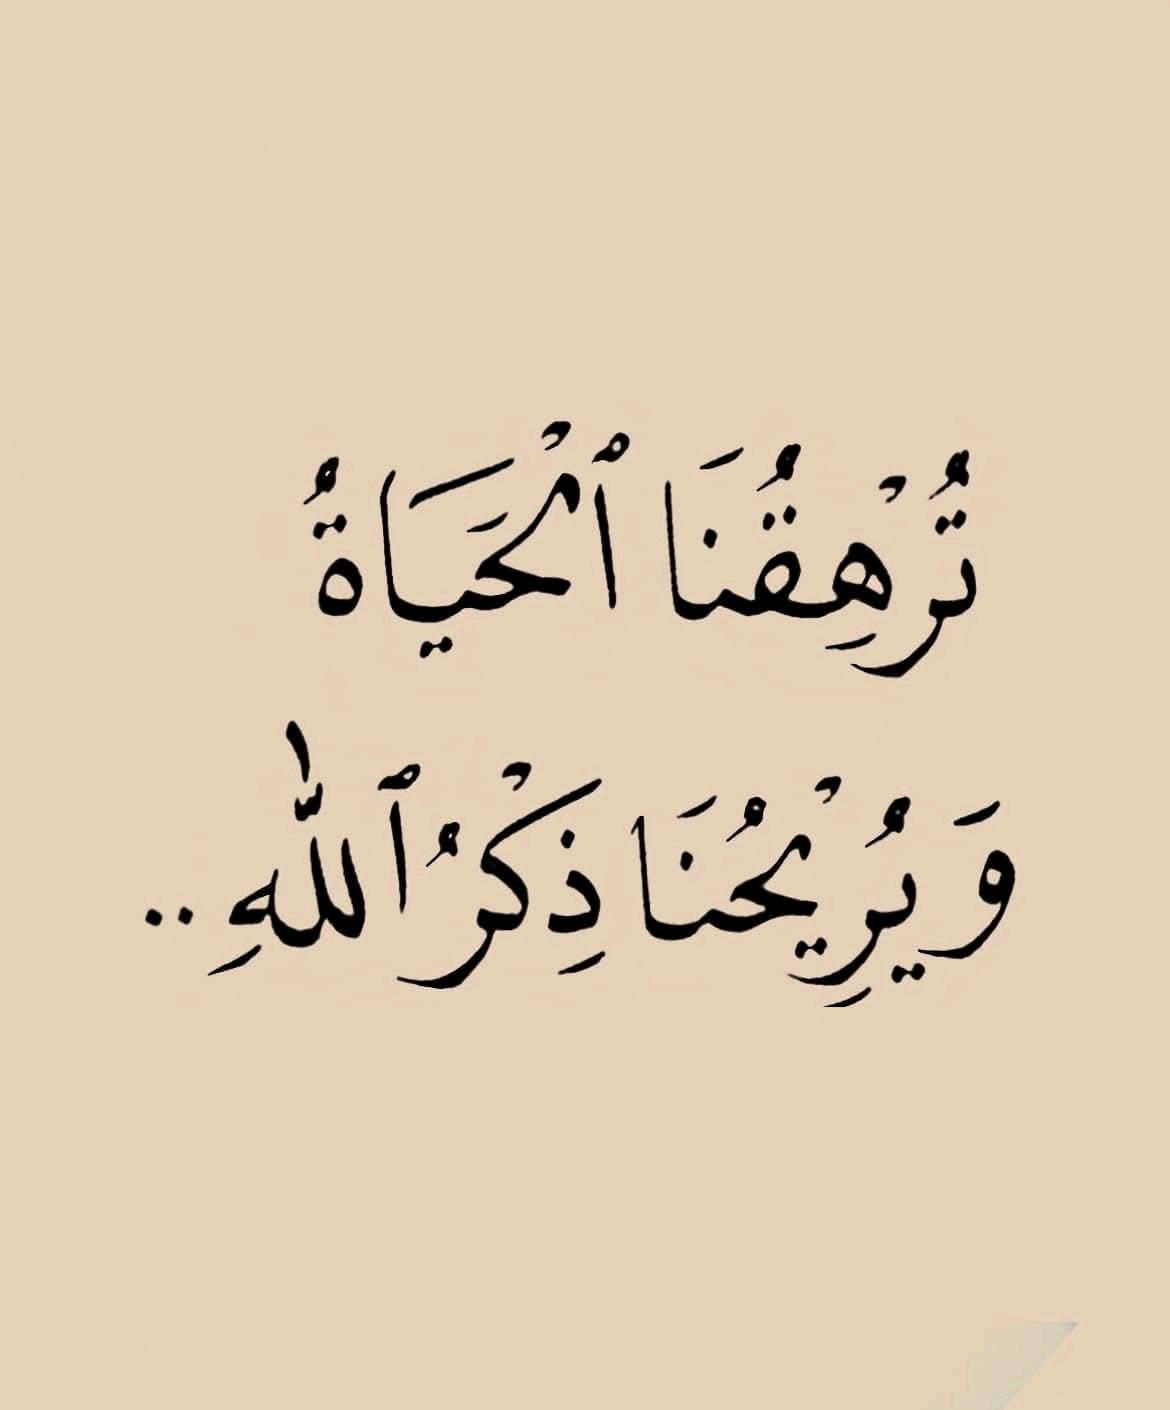 تُرْهِقُنَا ٱلْحَيَاةُ
وَيُرِيْحُنَا ذِكْرُ ٱللّٰهِ ..